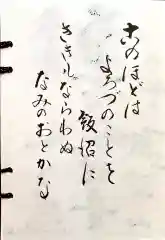 このほどは
よろづのことを
飯沼に
ききもならわぬ
なみのおとかな